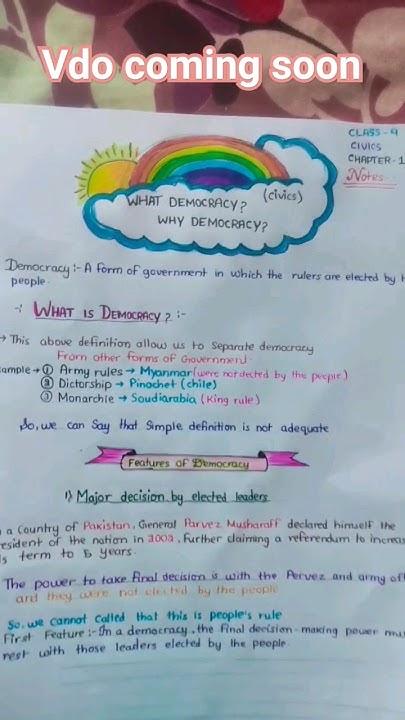 Vdo coming soon
CLASS - 9
CIVICS
CHAPTER - 1
Notes
WHAT DEMOCRACY? (civics)
WHY DEMOCRACY?
Democracy :- A form of government in which the rulers are elected by
people.
WHAT IS DEMOCRACY? :-
→ This above definition allow us to separate democracy
From other forms of Government.
ample → ① Army rules → Myanmar (were not elected by the people)
② Dictorship → Pinochet (chile)
③ Monarchie → Soudiarabia (King rule)
So, we can Say that Simple definition is not adequate
Features of Democracy
1) Major decision by elected leaders.
a Country of Pakistan, General Parvez Musharaff declared himself the
resident of the nation in 2002, further claiming a referendum to increas
s term to 5 years.
The power to take final decision is with the Pervez and army of
and they were not elected by the people
So, we cannot Called that this is people's rule
First Feature :- In a democracy, the final decision-making power mu
rest with those leaders elected by the people.